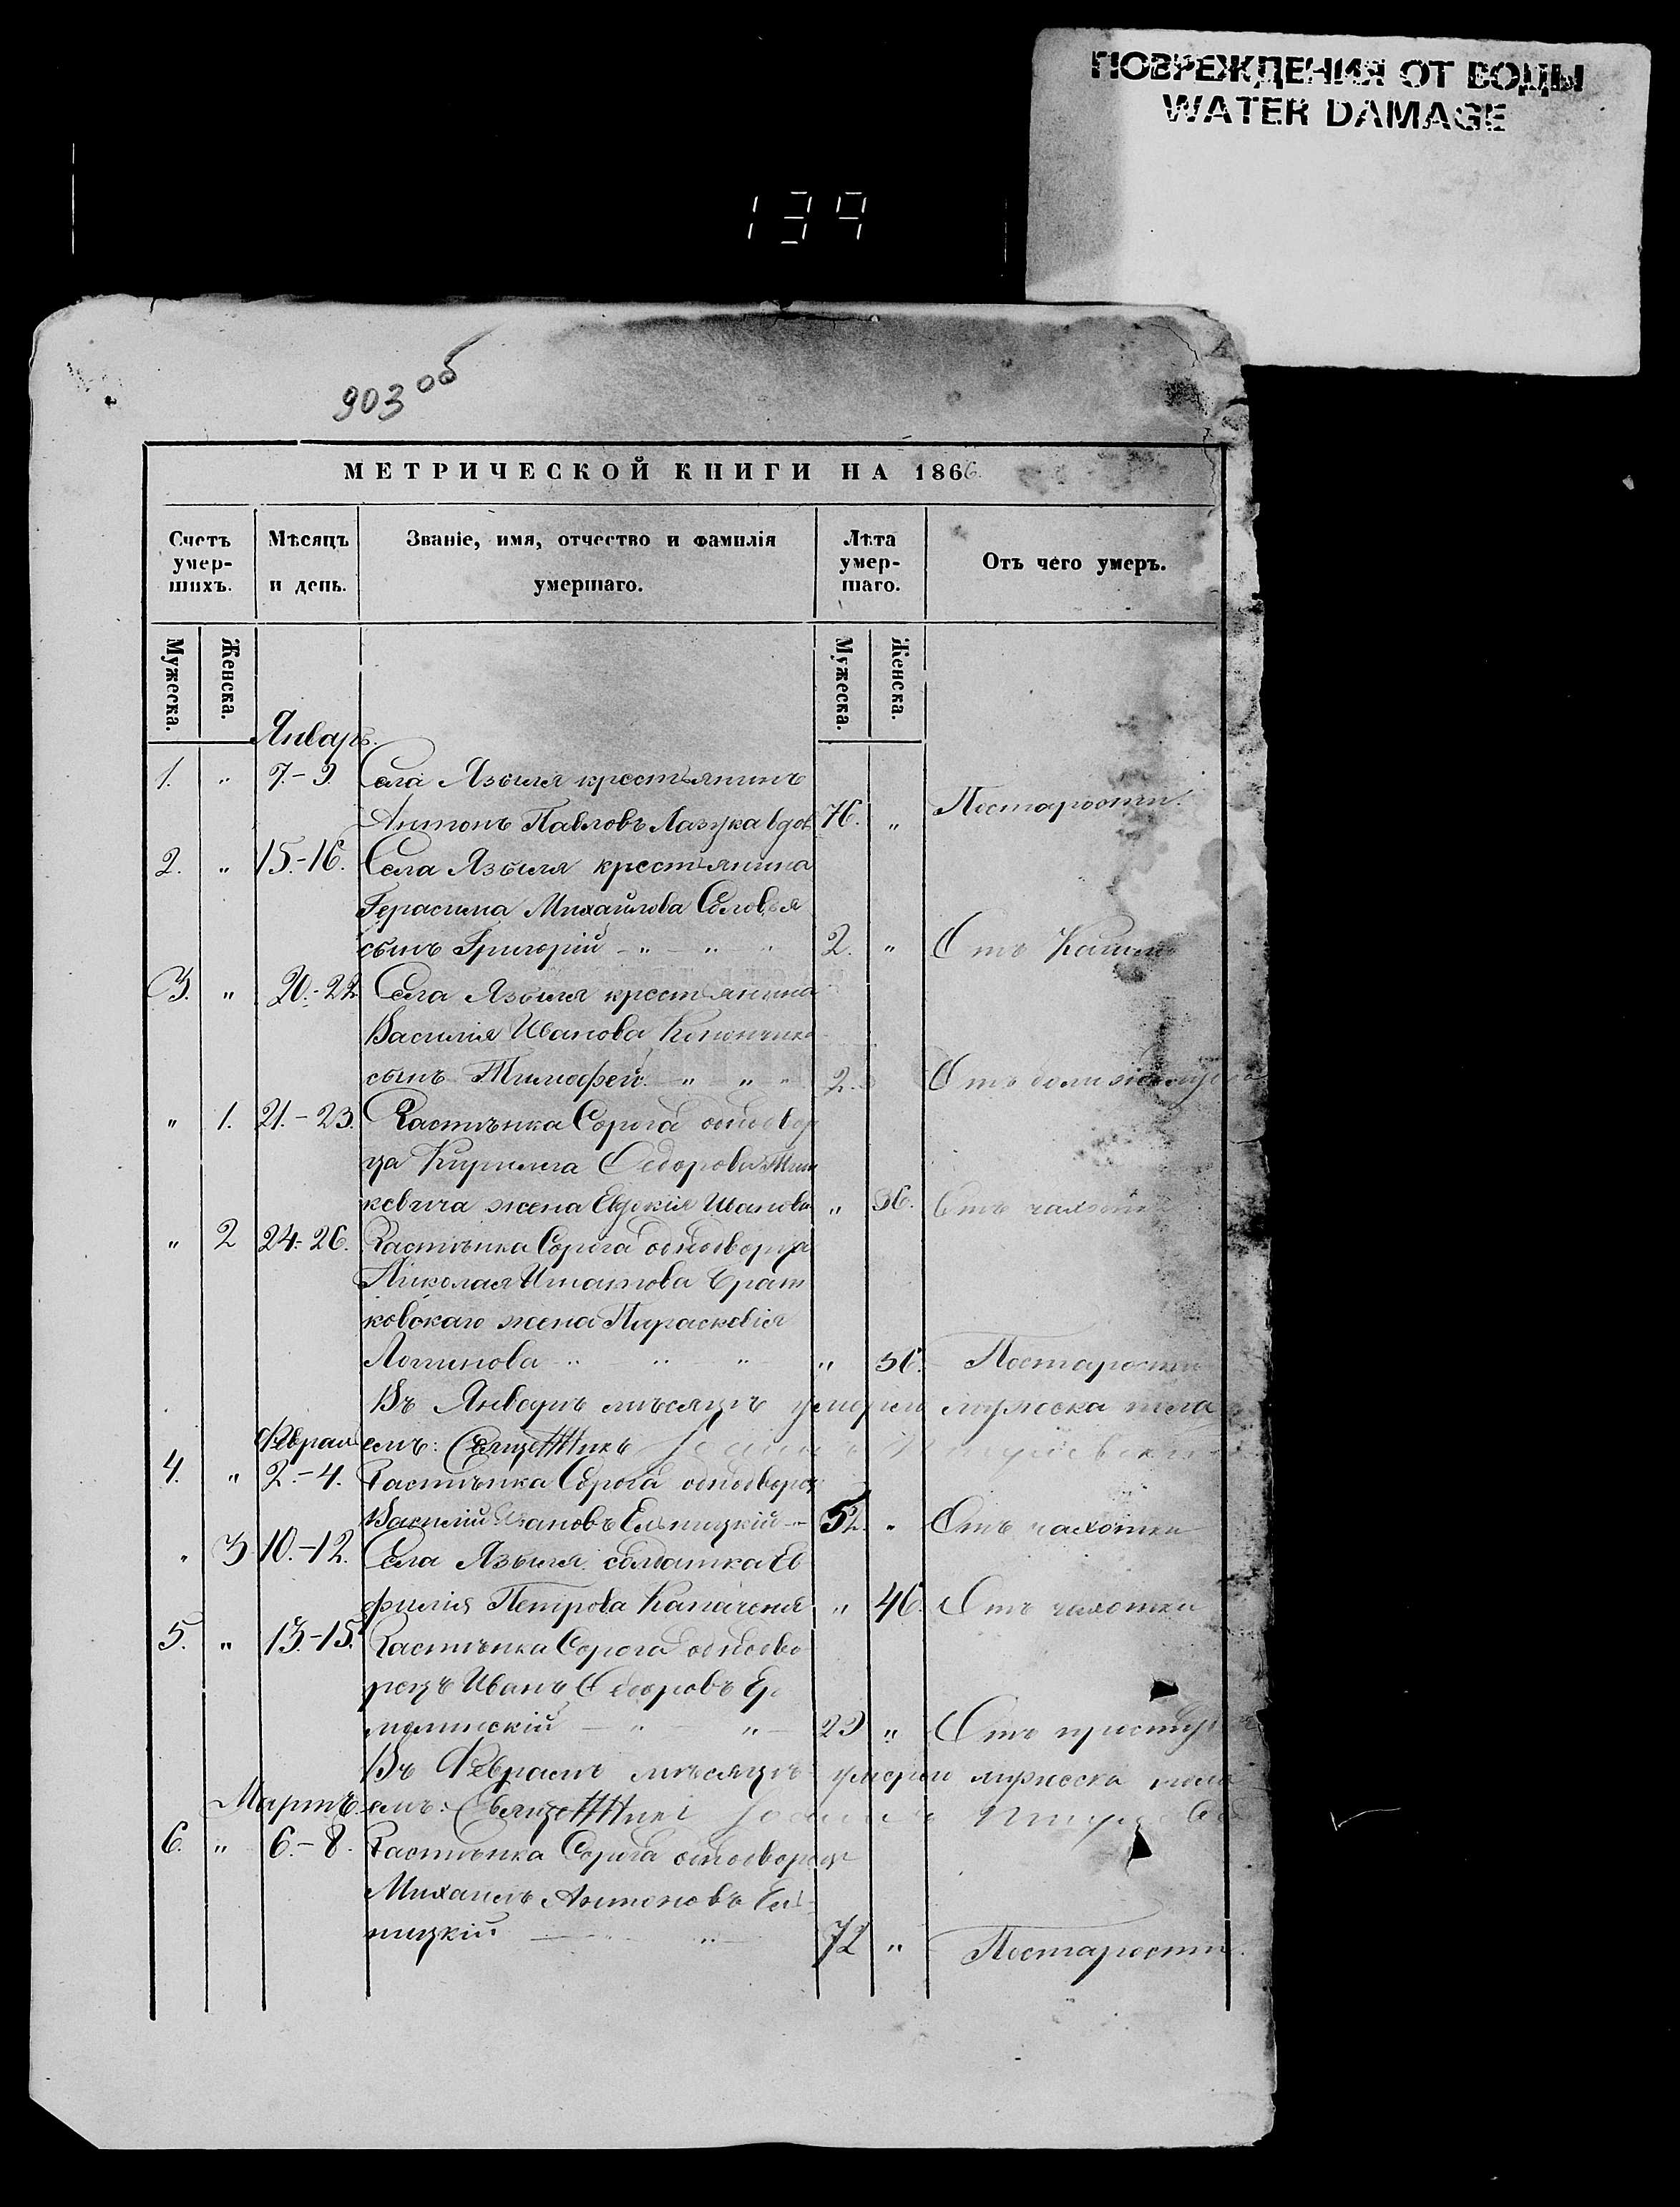 ПОВРЕЖДЕНИЯ ОТ ВОДЫ
WATER DAMAGE
139
903 об
МЕТРИЧЕСКОЙ КНИГИ НА 1866.
Счетъ умер-шихъ.
Мѣсяцъ и день.
Званіе, имя, отчество и фамилія умершаго.
Лѣта умер-шаго.
Отъ чего умеръ.
Мужеска.
Женска.
Мужеска.
Женска.
Январь.
1. " 7-9 Села Языля крестьянинъ
Антонъ Павловъ Лазука вдов 76. " Постарости.
2. " 15.-16. Села Языля крестьянина
Герасима Михайлова Соловья
сынъ Григорій - " - " " 2. " Отъ Кашля
3. " 20.-22 Села Языля крестьянина
Василія Иванова
сынъ Тимофей. " " " 2. Отъ боли
" 1. 21.-23. Застѣнка Сорога однодвор
ца Кирилла Ѳедорова
кевича жена Евдокія Иванова " 36. Отъ чахотки
" 2 24.-26. Застѣнка Сорога однодворца
Николая Игнатова Брат
ковскаго жена Параскевія
Логинова " " " " 56. Постарости
Въ Январѣ мѣсяцѣ умерли мужеска пола
Феврал емъ: Священникъ
4. " 2.-4. Застѣнка Сорога однодворец
Василій Ивановъ Ельницкій - 52. " Отъ чахотки
" 3 10.-12. Села Языля солдатка Ев
фимія Петрова " 46. Отъ чахотки
5. " 13.-15. Застѣнка Сорога однодво
рецъ Иванъ Ѳедоровъ Ер
молинскій - " " - 29 " Отъ простуды
Въ Февралѣ мѣсяцѣ умерли мужеска пола
Мартъ. емъ: Священникъ
6. " 6.-8. Застѣнка Сорога однодворецъ
Михаилъ Антоновъ Ель-
ницкій " 72 " Постарости.